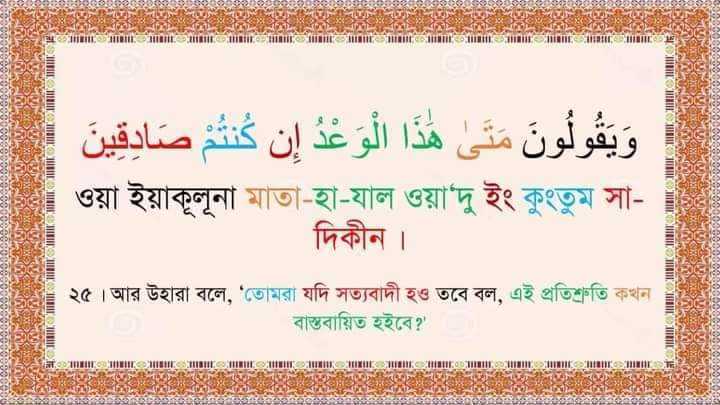 وَيَقُولُونَ مَتَىٰ هَٰذَا الْوَعْدُ إِن كُنتُمْ صَادِقِينَ
ওয়া ইয়াকূলূনা মাতা-হা-যাল ওয়া‘দু ইং কুংতুম সা-
দিকীন ।
২৫ । আর উহারা বলে, ‘তোমরা যদি সত্যবাদী হও তবে বল, এই প্রতিশ্রুতি কখন
বাস্তবায়িত হইবে?’